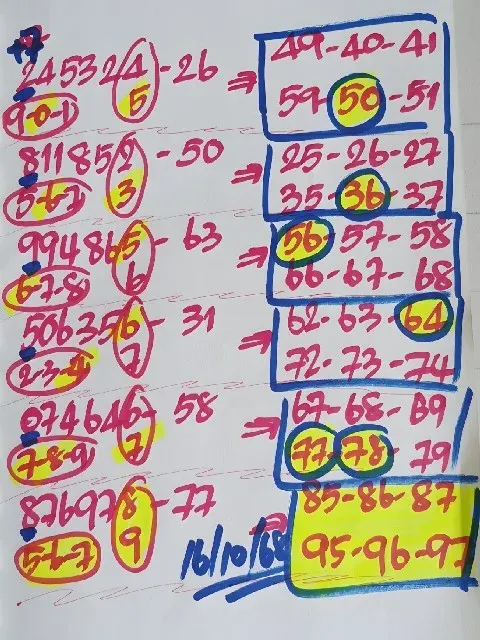 +7
245324-26 ⇒ 49-40-41
9-0-1 5 59-50-51
811852-50 ⇒ 25-26-27
5-6-7 3 35-36-37
994865-63 ⇒ 56-57-58
6-7-8 6 66-67-68
506356-31 ⇒ 62-63-64
2-3-4 7 72-73-74
074646-58 ⇒ 67-68-69
7-8-9 7 77-78-79
876978-77 ⇒ 85-86-87
5-6-7 9 16/10/68 95-96-97